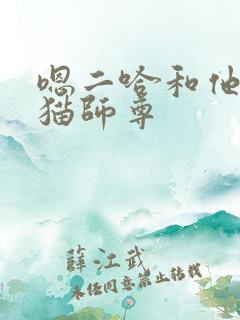 嗯二哈和他
猫師尊
薛江武
未经同意禁止转载